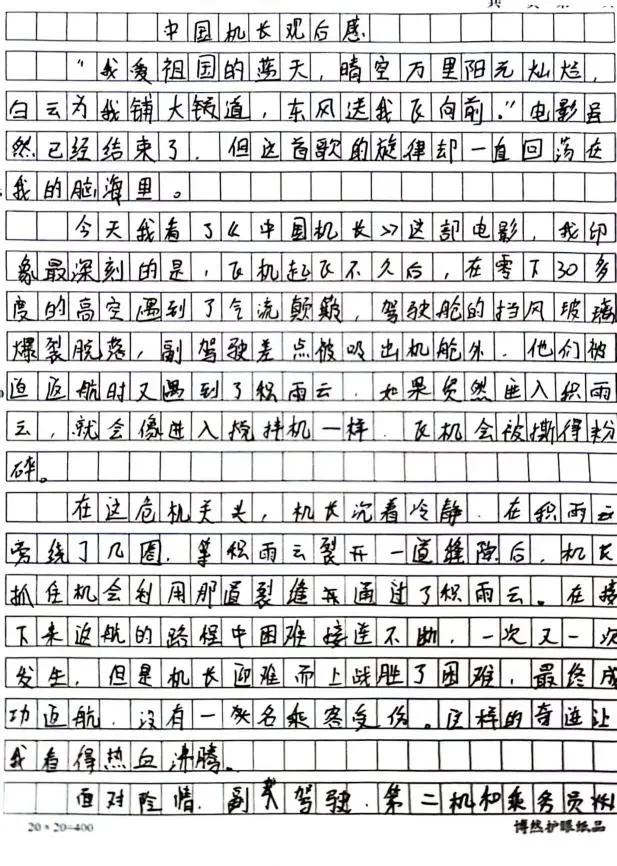 中国机长观后感
"我爱祖国的蓝天，晴空万里阳光灿烂，
白云为我铺大道，东风送我飞向前。"电影虽
然已经结束了，但这首歌的旋律却一直回荡在
我的脑海里。
今天我看了《中国机长》这部电影，我印
象最深刻的是，飞机起飞不久后，在零下30多
度的高空遇到了气流颠簸，驾驶舱的挡风玻璃
爆裂脱落，副驾驶差点被吸出机舱外，他们被
迫返航时又遇到了积雨云，如果贸然进入积雨
云，就会像进入搅拌机一样，飞机会被撕得粉
碎。
在这危机关头，机长沉着冷静，在积雨云
旁绕了几圈，等积雨云裂开一道缝隙后，机长
抓住机会利用那道裂缝并通过了积雨云。在接
下来返航的路程中困难接连不断，一次又一次
发生，但是机长迎难而上战胜了困难，最终成
功返航，没有一名乘客受伤。这样的奇迹让
我看得热血沸腾。
面对险情，副驾驶、第二机和乘务员
20×20=400
博然护眼纸品